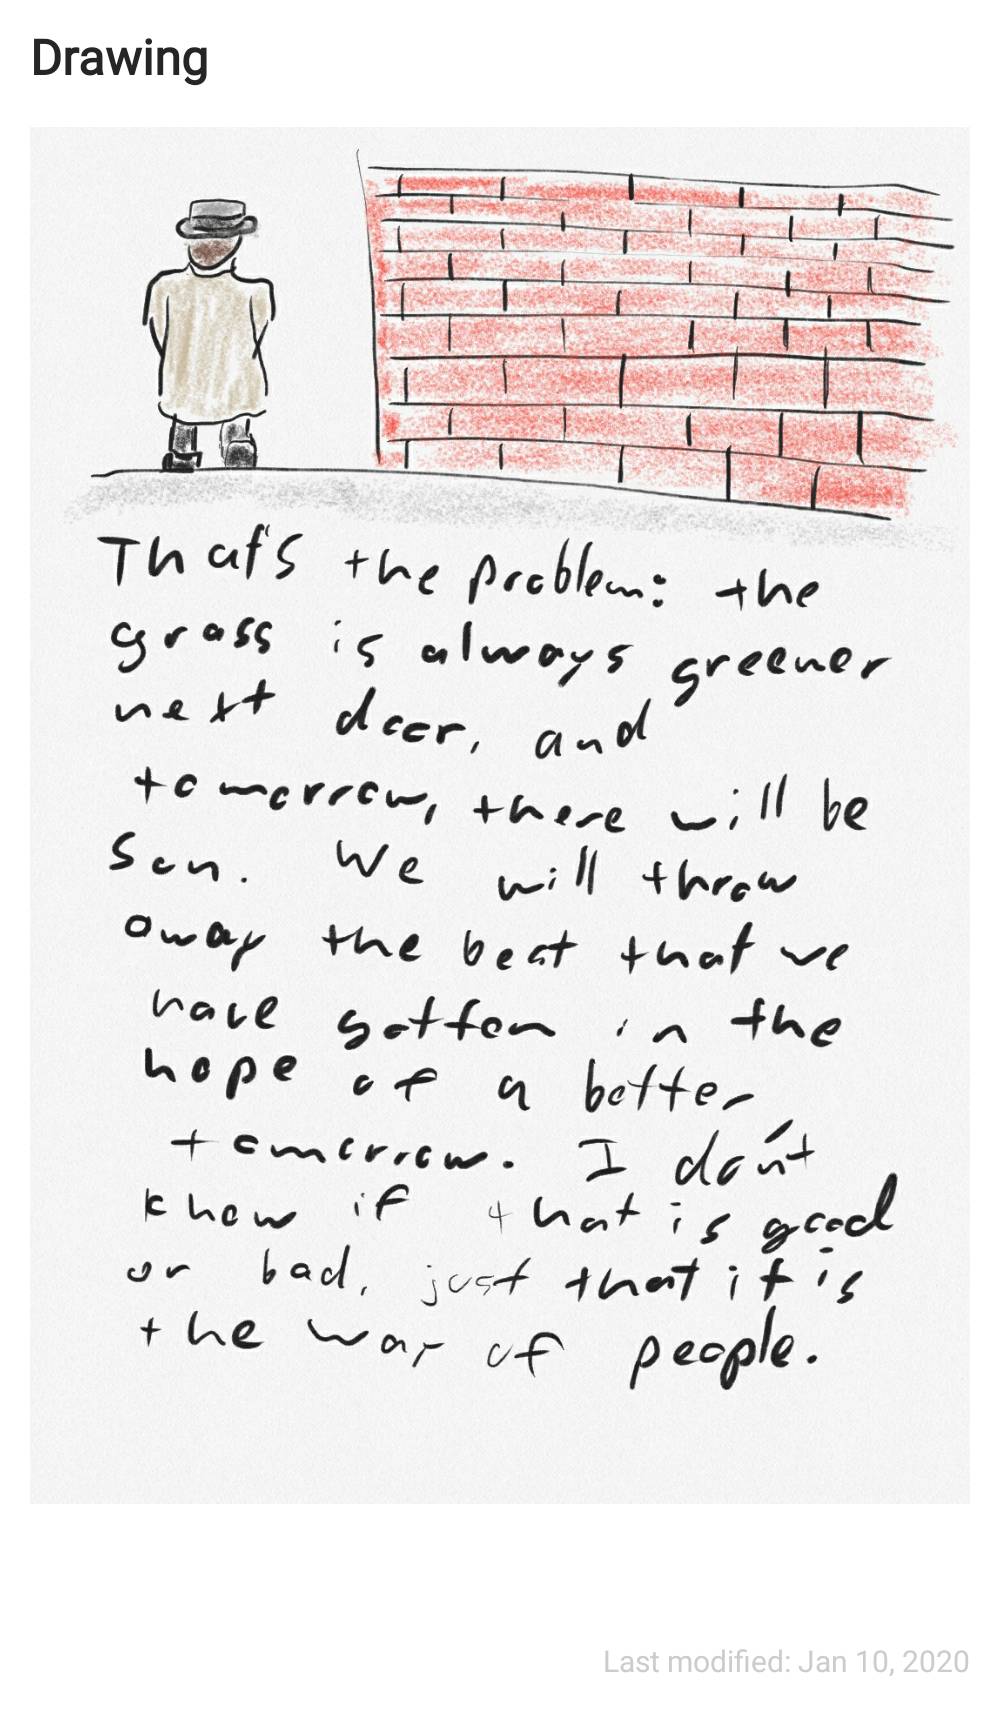 Drawing
That's the problem: the
grass is always greener
next door, and
tomorrow, there will be
sun. We will throw
away the best that we
have gotten in the
hope of a better
tomorrow. I don't
know if that is good
or bad, just that it is
the way of people.
Last modified: Jan 10, 2020